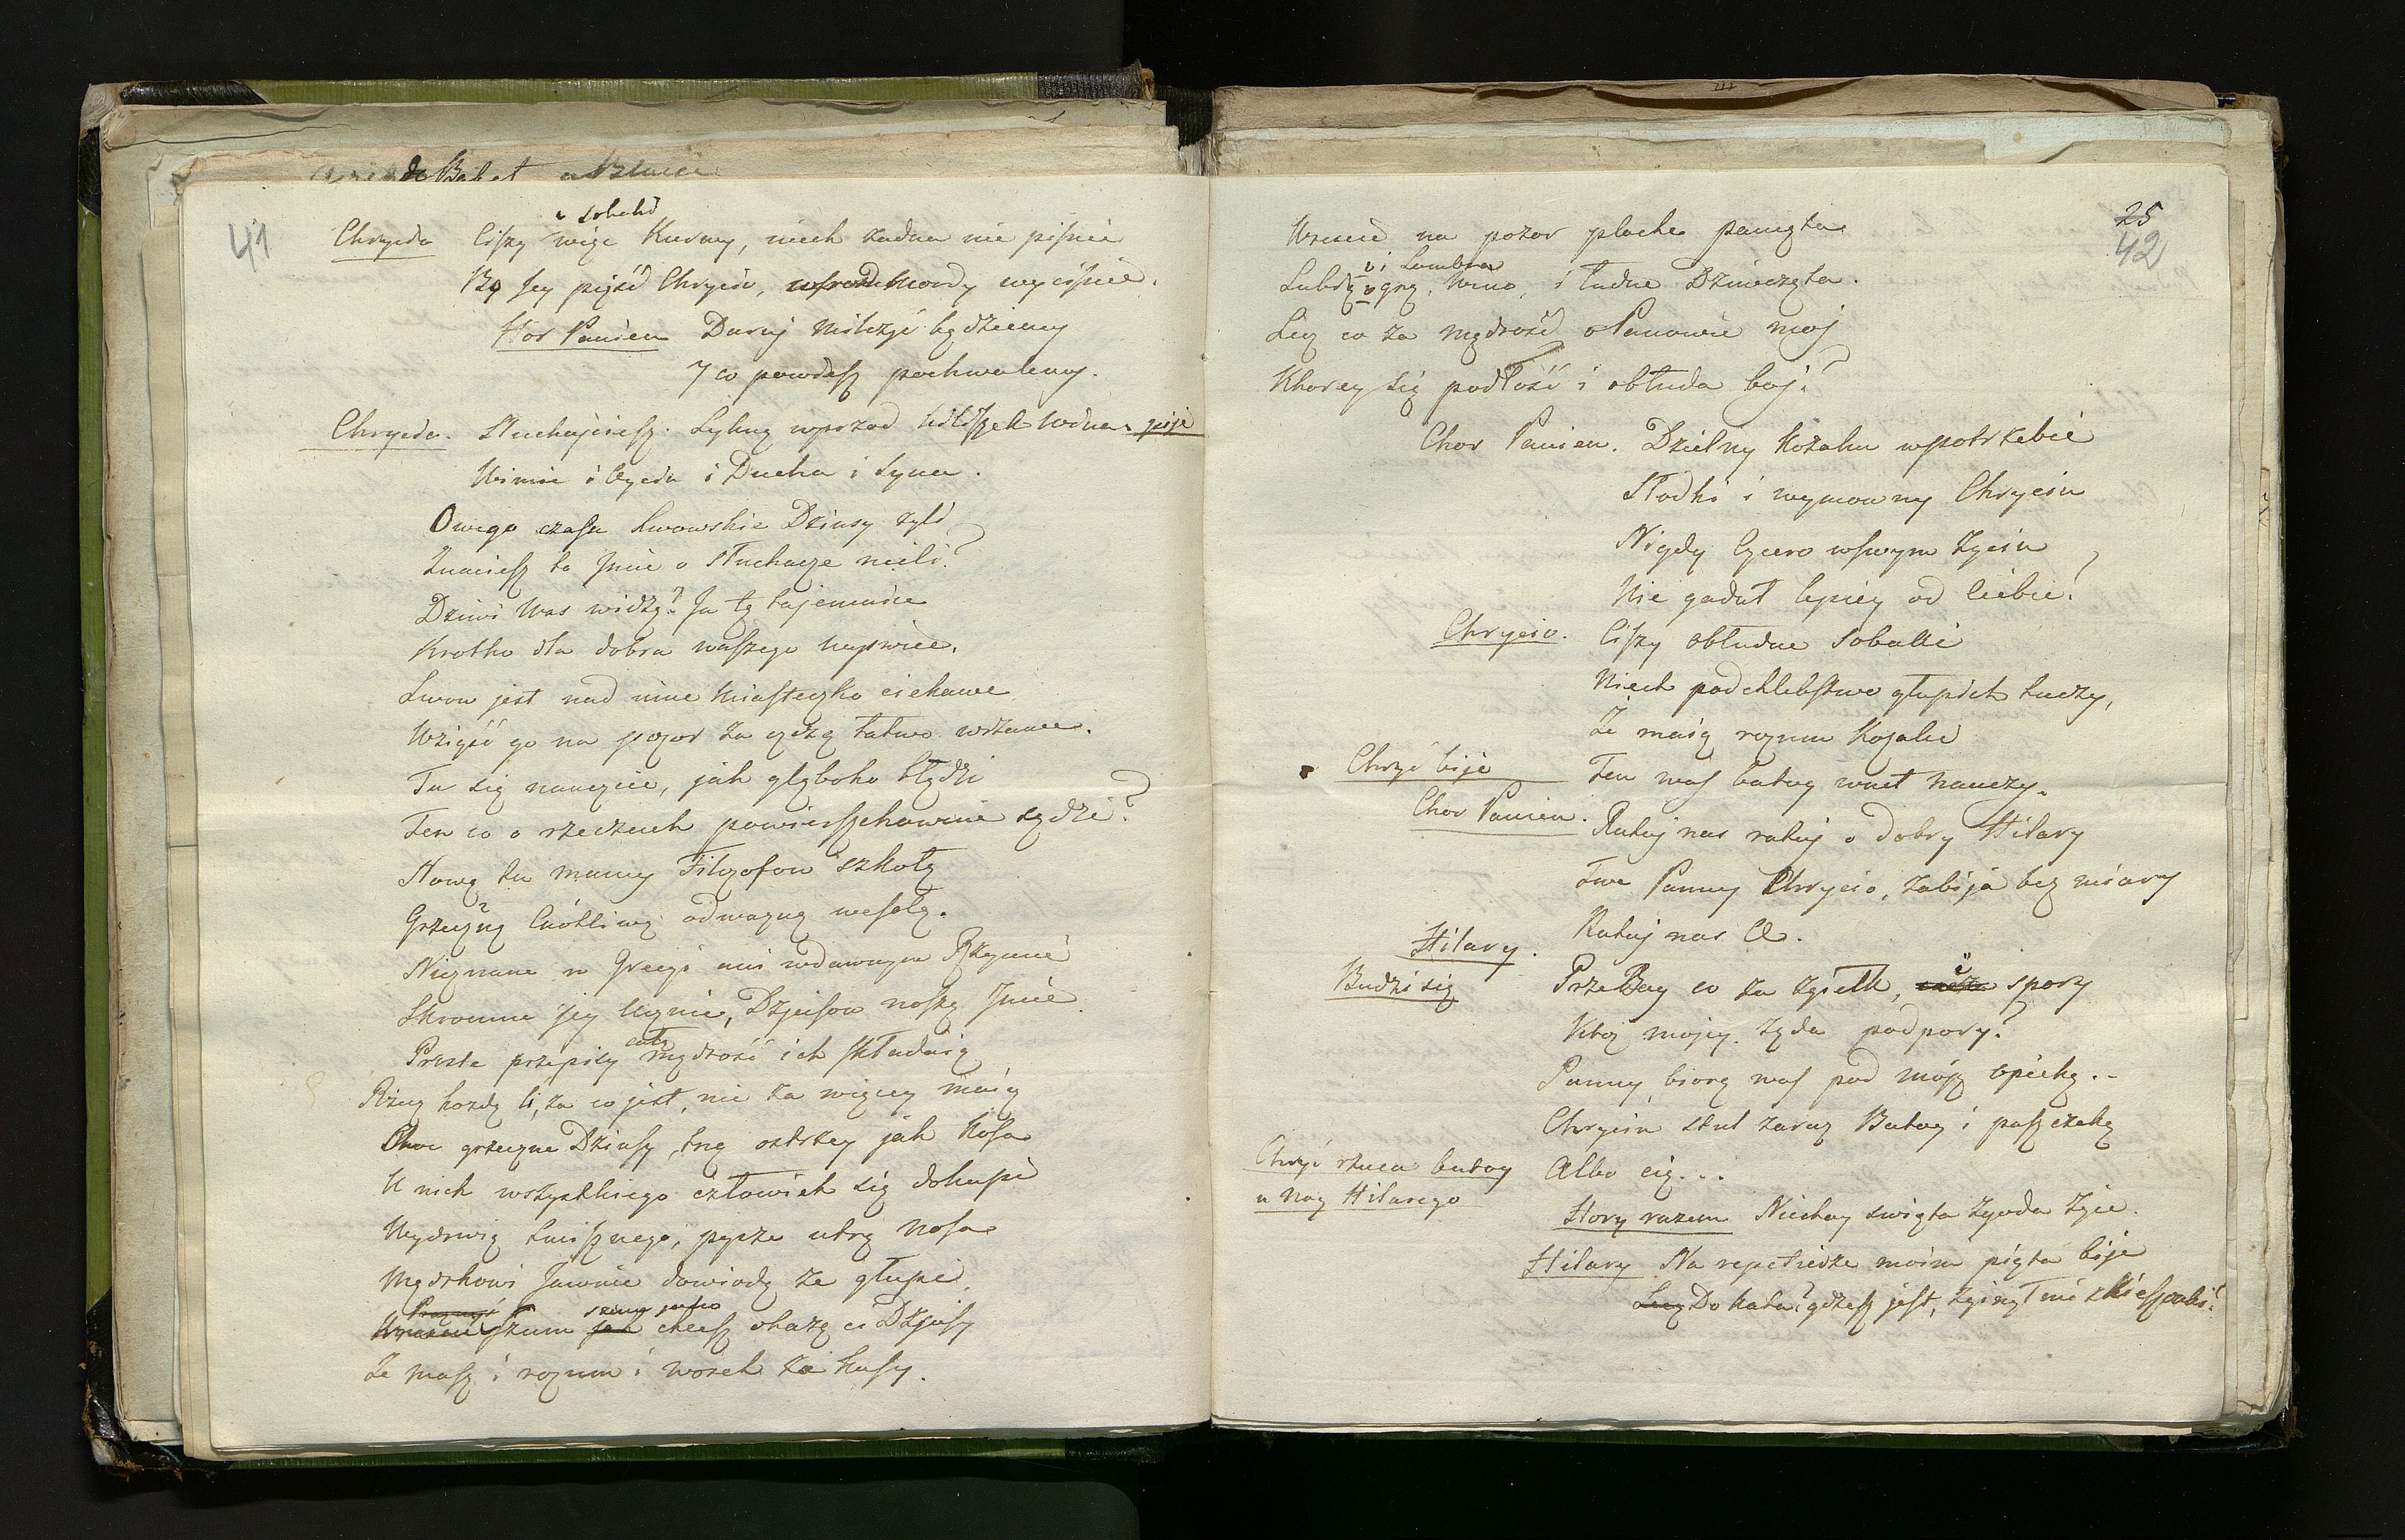 41
i sobaki
Chrycio Ciszy więc Kurwy, niech żadna nie piśnie
By Jey pięść Chrycia, wśrod mordy wyciśnie.
Hor Panien Daruj milczyć będziemy
I co powdasz pochwalemy.
Chrycio. Słuchajciesz. Łyknę wprzod kiliszek wodna. pije
W imie i Oyca i Ducha i Syna.
Owego czasu Lwowskie Dziusy żyli
Znaciesz to Jmie o słuchacze mili?
Dziwi Was widzę? Ja tę tajemnice
Krotko dla dobra waszego wyswiece.
Lwow jest nad inne Miasteczko ciekawe
Wziąść go na pozor za czczą łatwo wrzawe.
Tu się nauczcie, jak głęboko błądzi
Ten co o rzeczach powierszchownie sądzi?
Nową tu mamy Filozofow szkołę
Grzeczną Cnotliwą odważną wesołę.
Nieznane w Grecyi ani wdawnym Rzymie
Skromne jey Ucznie, Dzjusow noszą Jmie
całą
Proste przepisy mądrość ich składaią
Rżną każdy li, za co jest, nie za więcey maią
Choc grzeczne Dziusy, tną ostrzey jak kosa
U nich wszystkiego człowiek się dokupi
Wydrwią śmisznego, pysze utrą nosa
Mędrkowi Jawnie dowiodą że głupi.
szum jako chcesz okażą ci Dzjusy
Że masz i rozum i wosek za kusy.
25
42
Wrescie na pozor płoche panięta
i Lombra
Lubią grę, Wino, i ładne Dziwczęta.
Lecz co za mądrość o Panowie moj
Ktorey się podłość i obłuda boj?
Chor Panien. Dzielny Kozaku wpotrzebie
Słodki i wymowny Chryciu
Nigdy Cycero wswym życiu
Nie gadał lepiey od Ciebie!
Chrycio. Ciszy obłudne Sobaki
Niech podchlebstwo głupich tuczy,
Że maią rozum Kozaki
Chryć bije Ten was batog wnet nauczy.
Chor Panien. Ratuj nas ratuj o dobry Hilary
Twe Panny Chrycio, zabija bez miary
Ratuj nas &.
Hilary.
Budzi się Prze Bóg co za zgiełk, i spory
Ktoż mojey żąda podpory?
Panny biorę was pod moję opiekę..
Chryciu stul zaraz Batog i paszczekę
Chryć rzuca batog Albo cię...
u nog Hilarego
Hory razem Niechay swięta zgoda żyie.
Hilary Na repetierze moim piąta bije
Do kata! gdzesz jest, zginął mi